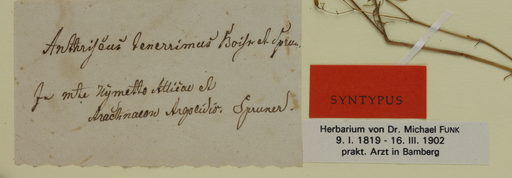 Anthriscus tenerrimus Boiss et Sprun.
In mte Hymetto Atticae et
Arachnaeon Argolidis. Spruner.
SYNTYPUS
Herbarium von Dr. Michael FUNK
9. I. 1819 - 16. III. 1902
prakt. Arzt in Bamberg